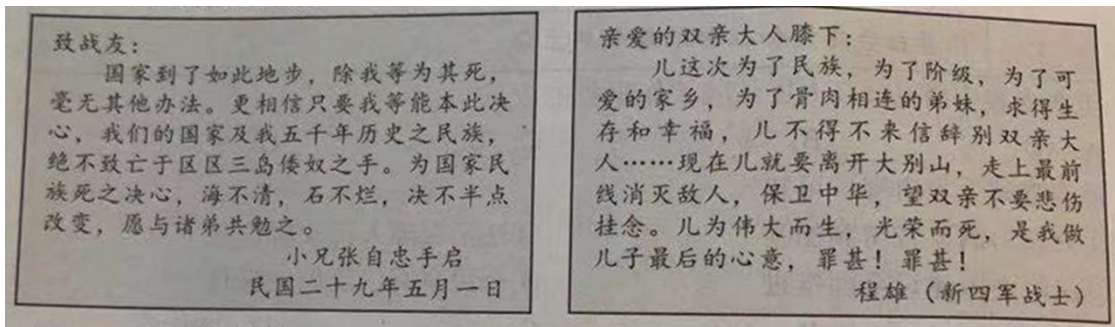 致战友：
国家到了如此地步，除我等为其死，
毫无其他办法。更相信只要我等能本此决
心，我们的国家及我五千年历史之民族，
绝不致亡于区区三岛倭奴之手。为国家民
族死之决心，海不清，石不烂，决不半点
改变，愿与诸弟共勉之。
小兄张自忠手启
民国二十九年五月一日
亲爱的双亲大人膝下：
儿这次为了民族，为了阶级，为了可
爱的家乡，为了骨肉相连的弟妹，求得生
存和幸福，儿不得不来信辞别双亲大
人……现在儿就要离开大别山，走上最前
线消灭敌人，保卫中华，望双亲不要悲伤
挂念。儿为伟大而生，光荣而死，是我做
儿子最后的心意，罪甚！罪甚！
程雄（新四军战士）